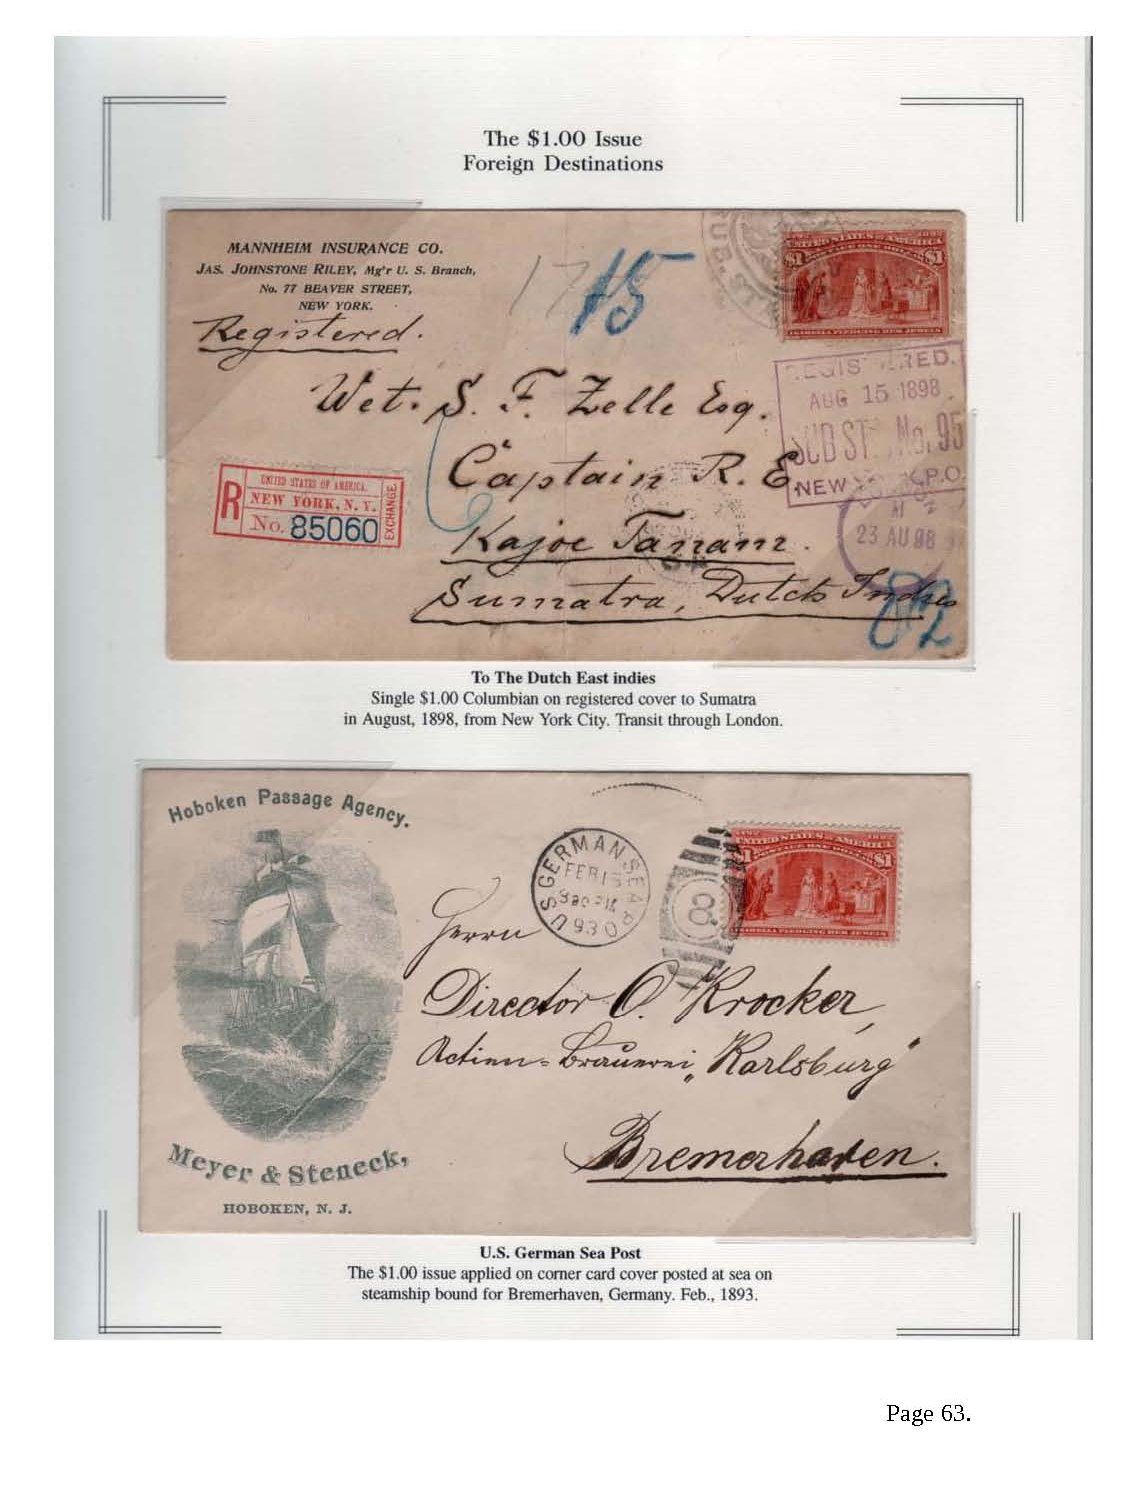 The $1.00 Issue
Foreign Destinations
MANNHEIM INSURANCE CO.
JAS. JOHNSTONE RILEY, Mg'r U. S. Branch,
No. 77 BEAVER STREET,
NEW YORK.
Registered.
17
15
SUB. ST
UNITED STATES OF AMERICA
POSTAGE ONE DOLLAR
$1 $1
ISABELLA PLEDGING HER JEWELS
REGISTERED.
AUG 15 1898
SUB ST. No. 95
NEW P.O.
23 AU 98
Wet. S. F. Zelle Esq.
Captain R. E.
Kajoe Tanam.
Sumatra, Dutch Indies
82
R
UNITED STATES OF AMERICA.
NEW YORK, N. Y.
No. 85060
EXCHANGE
To The Dutch East indies
Single $1.00 Columbian on registered cover to Sumatra
in August, 1898, from New York City. Transit through London.
Hoboken Passage Agency.
Meyer & Steneck,
HOBOKEN, N. J.
U S GERMAN SEA P
FEB 13
930
8
1492 1892
UNITED STATES OF AMERICA
POSTAGE ONE DOLLAR
$1 $1
ISABELLA PLEDGING HER JEWELS
Herrn
Director O. Krocker,
Actien=Brauerei „Karlsburg"
Bremerhaven.
U.S. German Sea Post
The $1.00 issue applied on corner card cover posted at sea on
steamship bound for Bremerhaven, Germany. Feb., 1893.
Page 63.